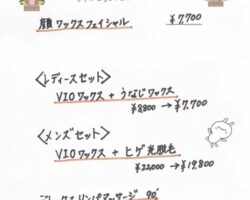 顔ワックスフェイシャル ¥7,700
<レディースセット>
VIOワックス + うなじワックス
¥8,800 → ¥7,700
<メンズセット>
VIOワックス + ヒゲ光脱毛
¥22,000 → ¥19,800